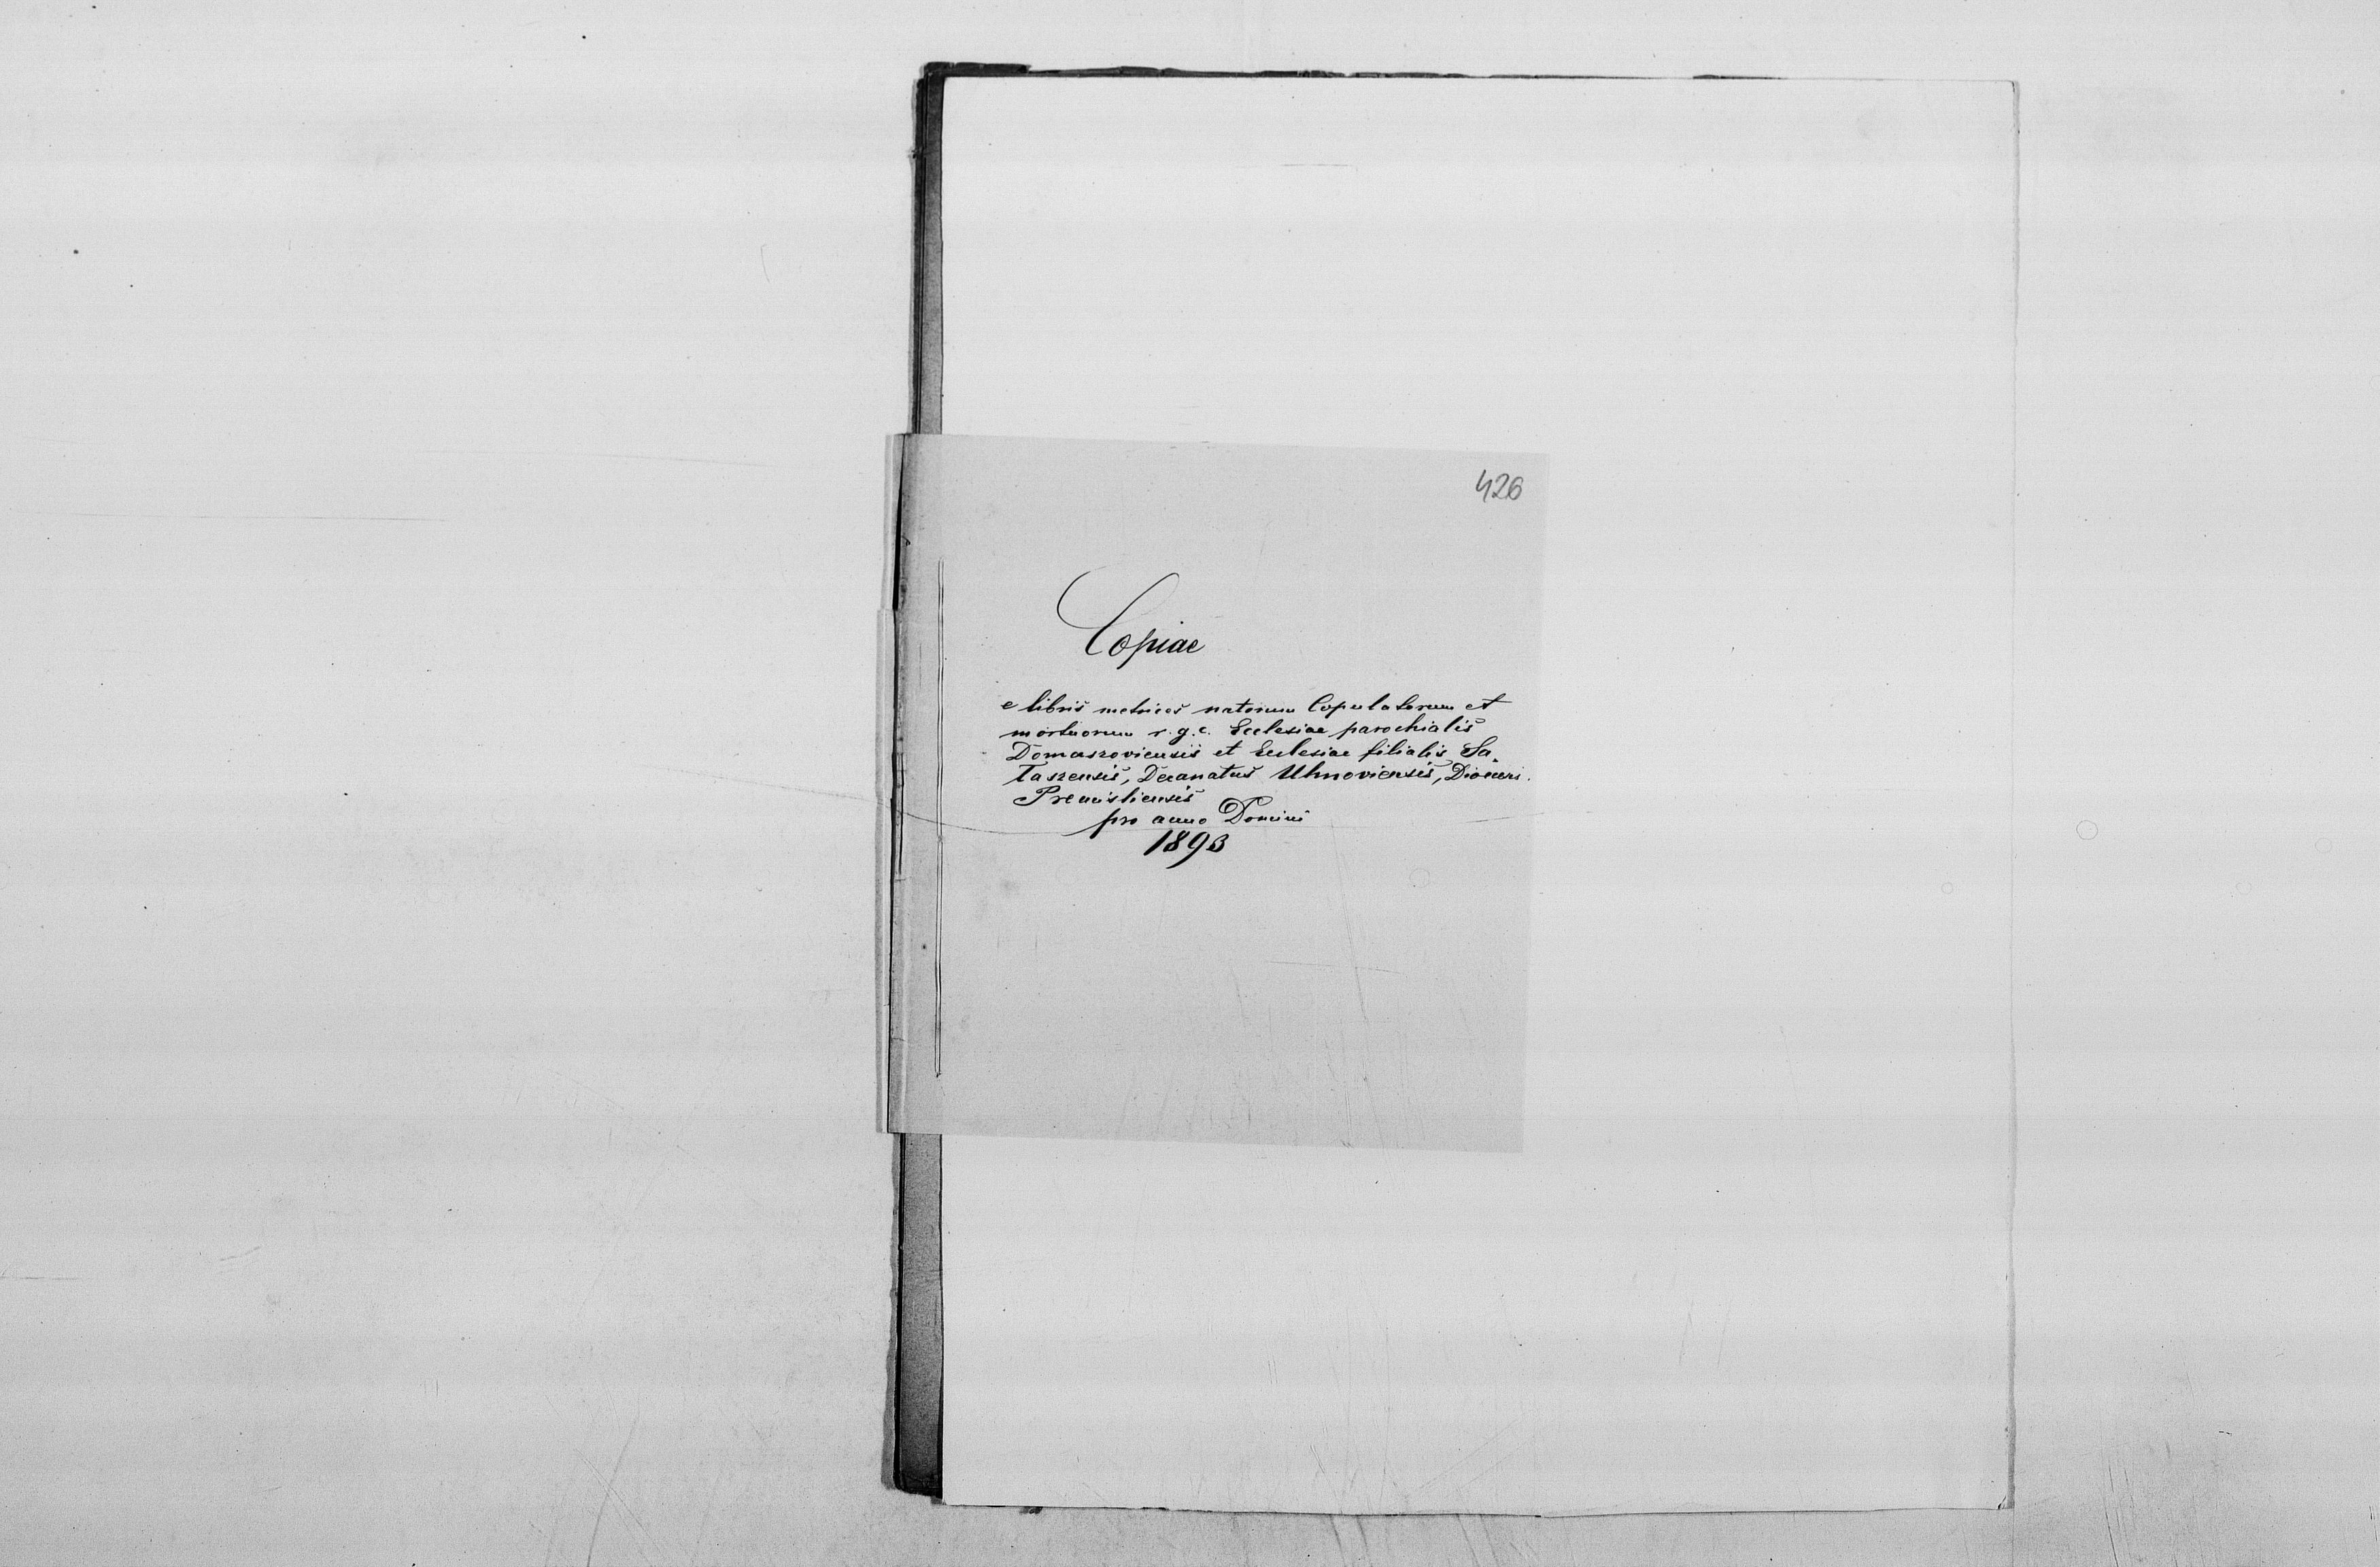 426
Copiae
e libris metrices natorum Copulatorum et
mortuorum r. g. c. Ecclesiae parochialis
Domaszoviensis et Ecclesiae filialis Sa-
taszensis, Decanatus Uhnoviensis, Dioecesi.
Premisliensis
pro anno Domini
1893